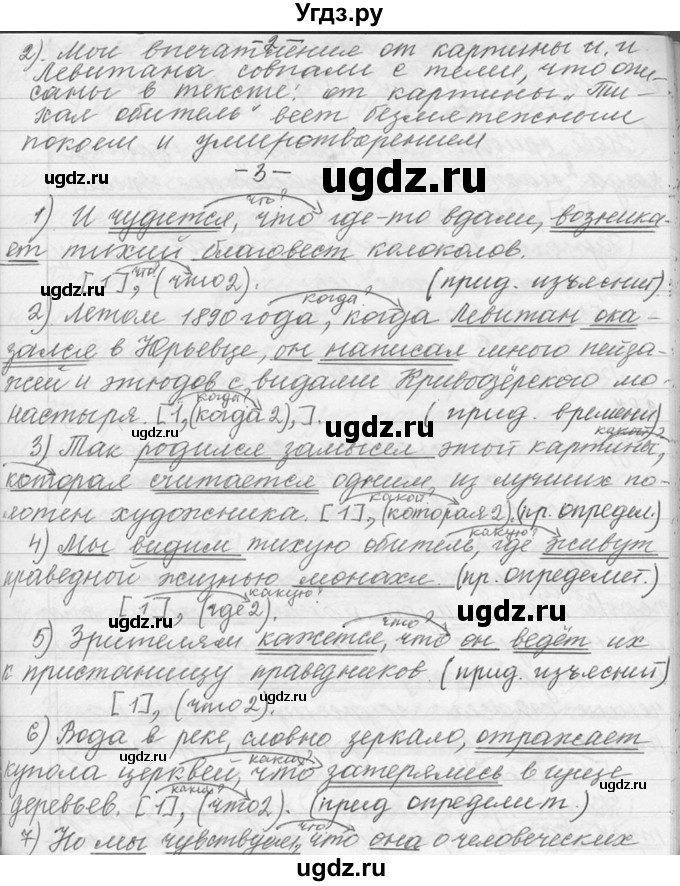 Угдз.ру
2). Мои впечатления от картины И. И.
Левитана совпали с теми, что опи-
саны в тексте: от картины „Ти-
хая обитель" веет безмятежным
покоем и умиротворением
-3-
ugdz.ru
ugdz.ru
что?
1) И чудится, что где-то вдали, возника-
ет тихий благовест колоколов.
ugdz.ru
[1], (что 2). (прид. изъяснит)
что?
ugdz.ru
когда?
2) Летом 1890 года, когда Левитан ока-
зался в Юрьевце, он написал много пейза-
жей и этюдов с видами Кривоозёрского мо-
настыря. [1, (когда 2), ]. (прид. времени)
когда?
ugdz.ru
какой?
3) Так родился замысел этой картины,
которая считается одним, из лучших по-
лотен художника. [1], (которая 2). (пр. определ.)
какой?
какую?
4) Мы видим тихую обитель, где живут
праведной жизнью монахи. (пр. определит.)
ugdz.ru
какую?
[1], (где 2).
ugdz.ru
что?
5) Зрителям кажется, что он ведёт их
к пристанищу праведников. (прид. изъяснит)
ugdz.ru
[1], (что 2).
ugdz.ru
6) Вода в реке, словно зеркало, отражает
какие?
купола церквей, что затерялись в гуще
деревьев. [1], (что 2). (прид определит.)
какие?
ugdz.ru
что?
7) Но мы чувствуем, что она о человеческих
ugdz.ru